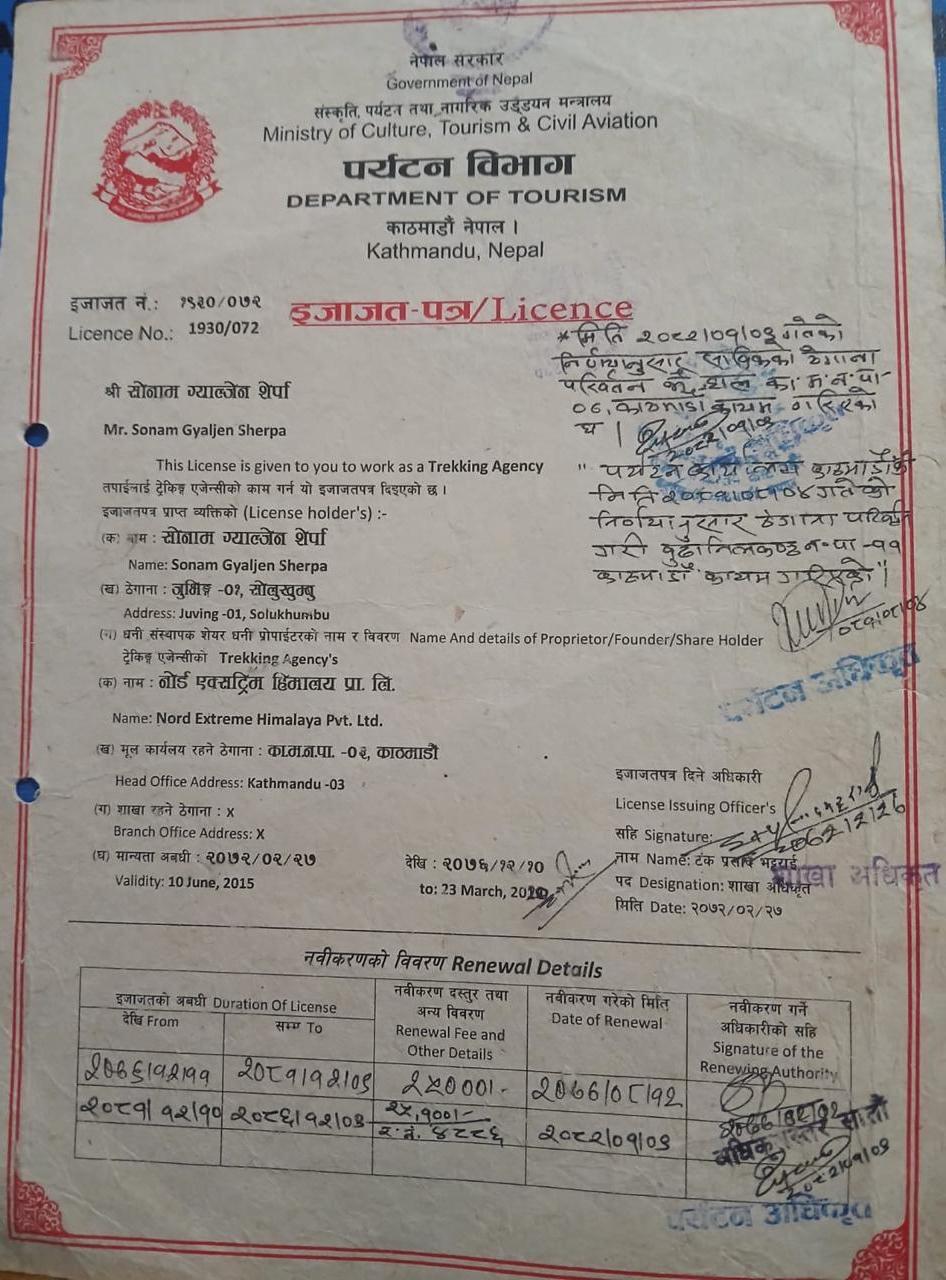 नेपाल सरकार
Government of Nepal
संस्कृति, पर्यटन तथा नागरिक उड्डयन मन्त्रालय
Ministry of Culture, Tourism & Civil Aviation
पर्यटन विभाग
DEPARTMENT OF TOURISM
काठमाडौं नेपाल ।
Kathmandu, Nepal
इजाजत नं.: १९३०/०७२
Licence No.: 1930/072
इजाजत-पत्र/Licence
*मिति २०८२/०१/०३ गतेको
निर्णयानुसार साविकको ठेगाना
परिवर्तन भै हाल का.म.न.पा-
०६, काठमाडौं कायम गरिएको
छ ।
२०८२/०१/०३
श्री सोनाम ग्याल्जेन शेर्पा
Mr. Sonam Gyaljen Sherpa
This License is given to you to work as a Trekking Agency
तपाईलाई ट्रेकिङ्ग एजेन्सीको काम गर्न यो इजाजतपत्र दिइएको छ ।
इजाजतपत्र प्राप्त व्यक्तिको (License holder's) :-
" पर्यटन कार्यालय काठमाडौंको
मिति गतेको
निर्णयानुसार ठेगाना परिवर्तन
गरी बुढानिलकण्ठ न.पा-११
काठमाडौं कायम गरिएको"
(क) नाम : सोनाम ग्याल्जेन शेर्पा
Name: Sonam Gyaljen Sherpa
(ख) ठेगाना : जुभिङ्ग -०१, सोलुखुम्बु
Address: Juving -01, Solukhumbu
(ग) धनी संस्थापक शेयर धनी प्रोपाईटरको नाम र विवरण Name And details of Proprietor/Founder/Share Holder
ट्रेकिङ्ग एजेन्सीको Trekking Agency's
(क) नाम : नोर्ड एक्सट्रिम हिमालय प्रा. लि.
पर्यटन अधिकृत
Name: Nord Extreme Himalaya Pvt. Ltd.
(ख) मूल कार्यलय रहने ठेगाना : का.म.न.पा. -०३, काठमाडौं
Head Office Address: Kathmandu -03
(ग) शाखा रहने ठेगाना : X
Branch Office Address: X
(घ) मान्यता अबधी : २०७२/०२/२७ देखि : २०७६/१२/१०
Validity: 10 June, 2015 to: 23 March, 2020
इजाजतपत्र दिने अधिकारी
License Issuing Officer's
सहि Signature:
नाम Name: टंक प्रसाद भट्टराई
पद Designation: शाखा अधिकृत
शाखा अधिकृत
मिति Date: २०७२/०२/२७
नवीकरणको विवरण Renewal Details
इजाजतको अबधी Duration Of License
देखि From
सम्म To
नवीकरण दस्तुर तथा
अन्य विवरण
Renewal Fee and
Other Details
नवीकरण गरेको मिति
Date of Renewal
नवीकरण गर्ने
अधिकारीको सहि
Signature of the
Renewing Authority
२०७६।१२।११ २०८१।१२।०९ २५०००।- २०७७।०८।१२
२०८१।१२।१० २०८६।१२।०९ २५,१००।- २०८२।०१।०३
र.नं. ४८८६
२०८२।०१।०३
पर्यटन अधिकृत